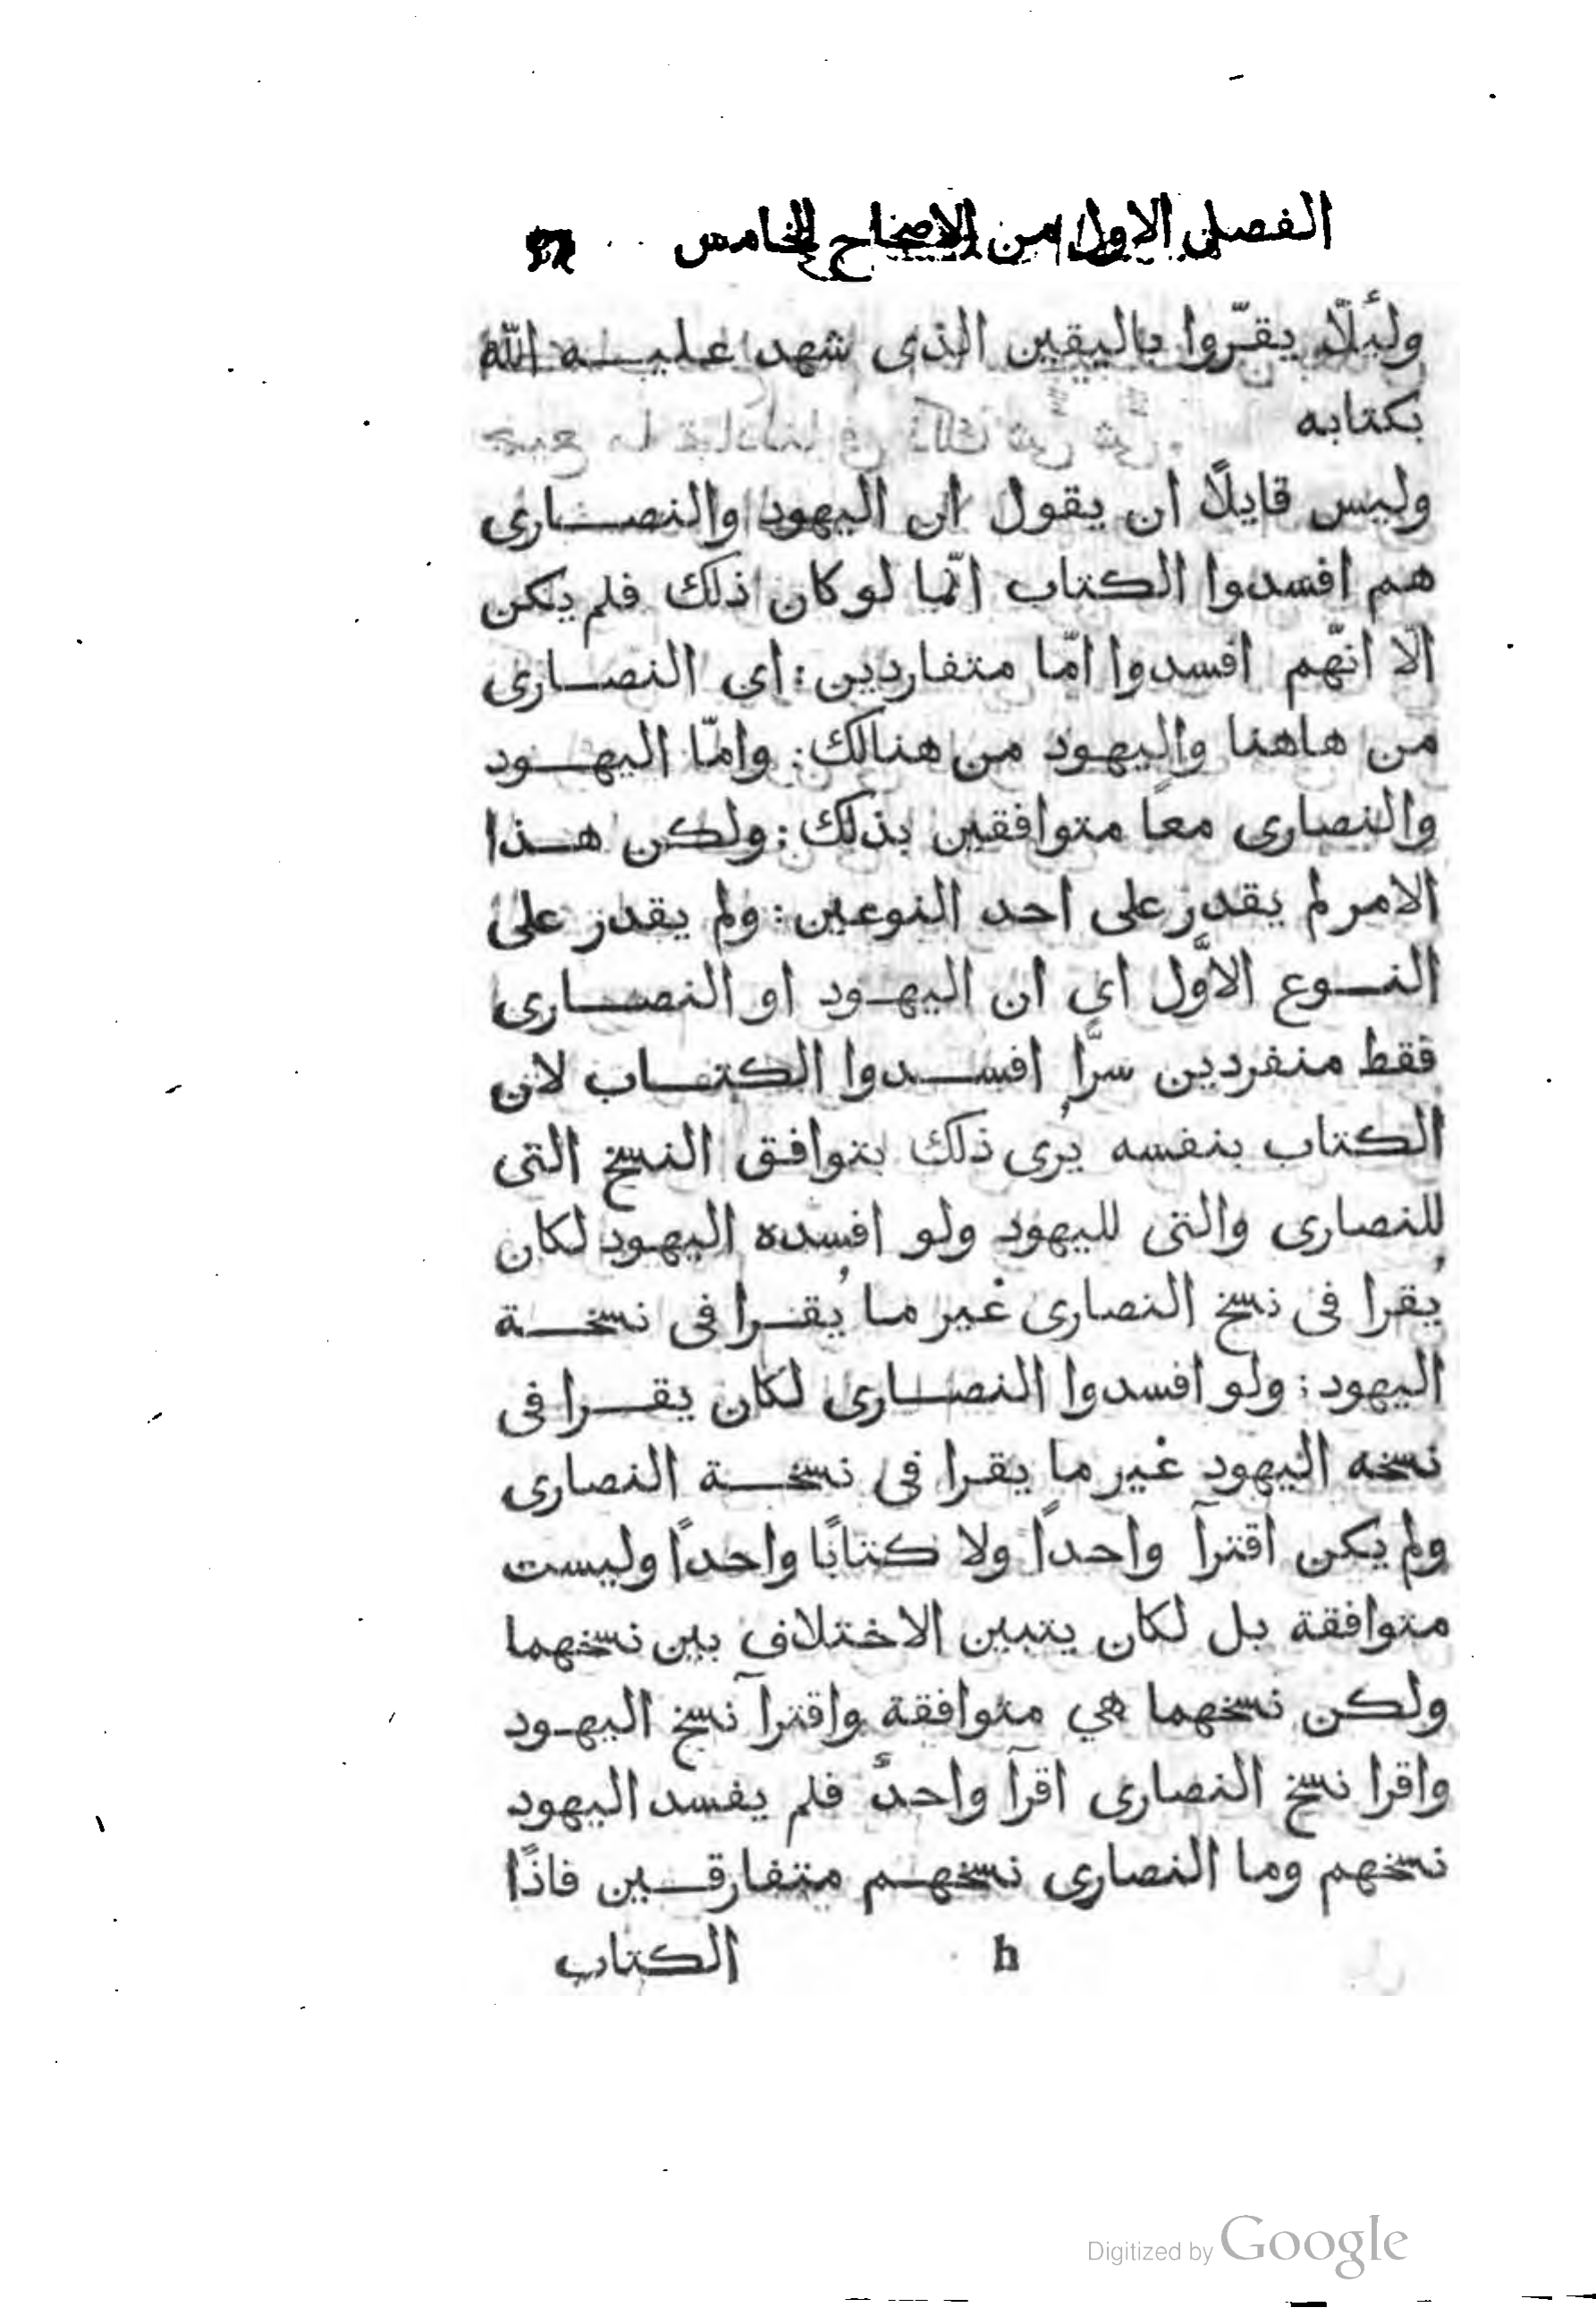 الفصل الاول من الاصحاح الخامس
ولئلّا يقرّوا باليقين الذى شهد عليه اللّه
بكتابه
وليس قايلاً ان يقول ان اليهود والنصارى
هم افسدوا الكتاب انّما لو كان ذلك فلم يكن
الّا انّهم افسدوا امّا متفاردين: اى النصارى
من هاهنا واليهود من هنالك: وامّا اليهود
والنصارى معاً متوافقين بذلك: ولكن هذا
الامر لم يقدر على احد النوعين: ولم يقدر على
النوع الاوّل اي ان اليهود او النصارى
فقط منفردين سرًّا افسدوا الكتاب لان
الكتاب بنفسه يُرى ذلك بتوافق النسخ التى
للنصارى والتى لليهود ولو افسده اليهود لكان
يُقرا فى نسخ النصارى غير ما يُقرا فى نسخة
اليهود: ولو افسدوا النصارى لكان يقرا فى
نسخه اليهود غير ما يقرا فى نسخة النصارى
ولم يكن اقترآ واحداً ولا كتابًا واحداً وليست
متوافقة بل لكان يتبين الاختلاف بين نسخهما
ولكن نسخهما هي متوافقة واقترآ نسخ اليهود
واقرا نسخ النصارى اقرآ واحدٌ فلم يفسد اليهود
نسخهم وما النصارى نسخهم متفارقين فاذًا
h الكتاب
Digitized by Google